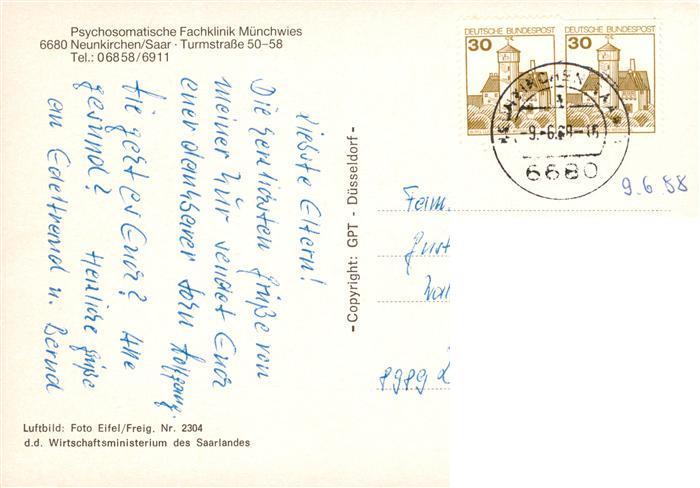 Psychosomatische Fachklinik Münchwies
6680 Neunkirchen/Saar · Turmstraße 50-58
Tel.: 06858/6911
DEUTSCHE BUNDESPOST
30
DEUTSCHE BUNDESPOST
30
9.-6.88-16
6680
9.6.88
Liebste Eltern!
Die herzlichsten Grüße von
meiner Kur sendet Euer
euer dankbarer Sohn Wolfgang.
Wie geht es Euch? Alle
gesund? Herzliche Grüße
an Edeltraud u. Bernd
- Copyright: GPT - Düsseldorf -
Fam.
8989
Luftbild: Foto Eifel/Freig. Nr. 2304
d.d. Wirtschaftsministerium des Saarlandes